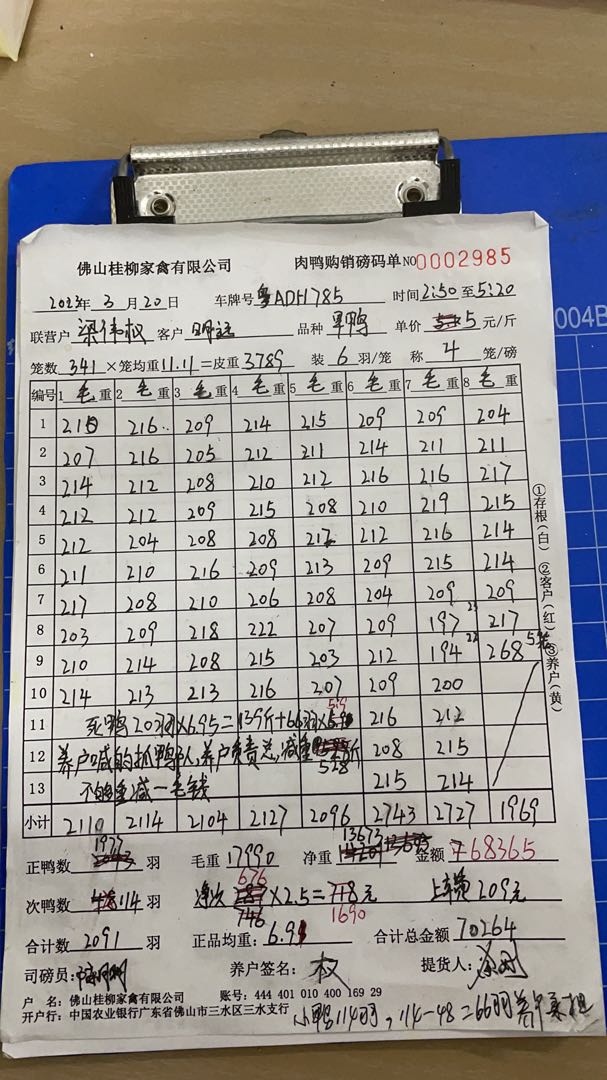 佛山桂柳家禽有限公司 肉鸭购销磅码单 NO 0002985
2023年 3月20日 车牌号 粤ADH785 时间 2:50 至 5:20
联营户 梁伟权 客户 明远 品种 旱鸭 单价 5 元/斤
笼数 341 ×笼均重 11.11 =皮重 3789 装 6 羽/笼 称 4 笼/磅
编号 1 毛重 2 毛重 3 毛重 4 毛重 5 毛重 6 毛重 7 毛重 8 毛重
1 210 216 209 214 215 209 209 204
2 207 216 205 212 211 214 211 211
3 214 212 208 210 212 216 216 217
4 212 212 209 215 208 210 219 215
5 212 204 208 208 212 212 216 214
6 211 210 216 209 213 209 215 214
7 217 208 210 206 208 204 209 209
8 203 209 218 222 207 209 197 217
9 210 214 208 215 203 212 194 268 5笼
10 214 213 213 216 207 209 200
11 死鸭20羽×6.95=139斤+66羽× 216 212
12 养户喊的抓鸭队,养户负责 减重 528 斤 208 215
13 减一毛钱 215 214
小计 2110 2114 2104 2127 2096 2743 2727 1969
正鸭数 1977 羽 毛重 17990 净重 13673 金额 68365
次鸭数 114 羽 净次 676 ×2.5= 1690 元 上车费 209元
746
合计数 2091 羽 正品均重: 6.91 合计总金额 70264
司磅员: 养户签名: 权 提货人:
户 名: 佛山桂柳家禽有限公司 账号: 444 401 010 400 169 29
开户行: 中国农业银行广东省佛山市三水区三水支行
小鸭114羽, 114-48=66羽养户
①存根(白) ②客户(红) ③养户(黄)
004B